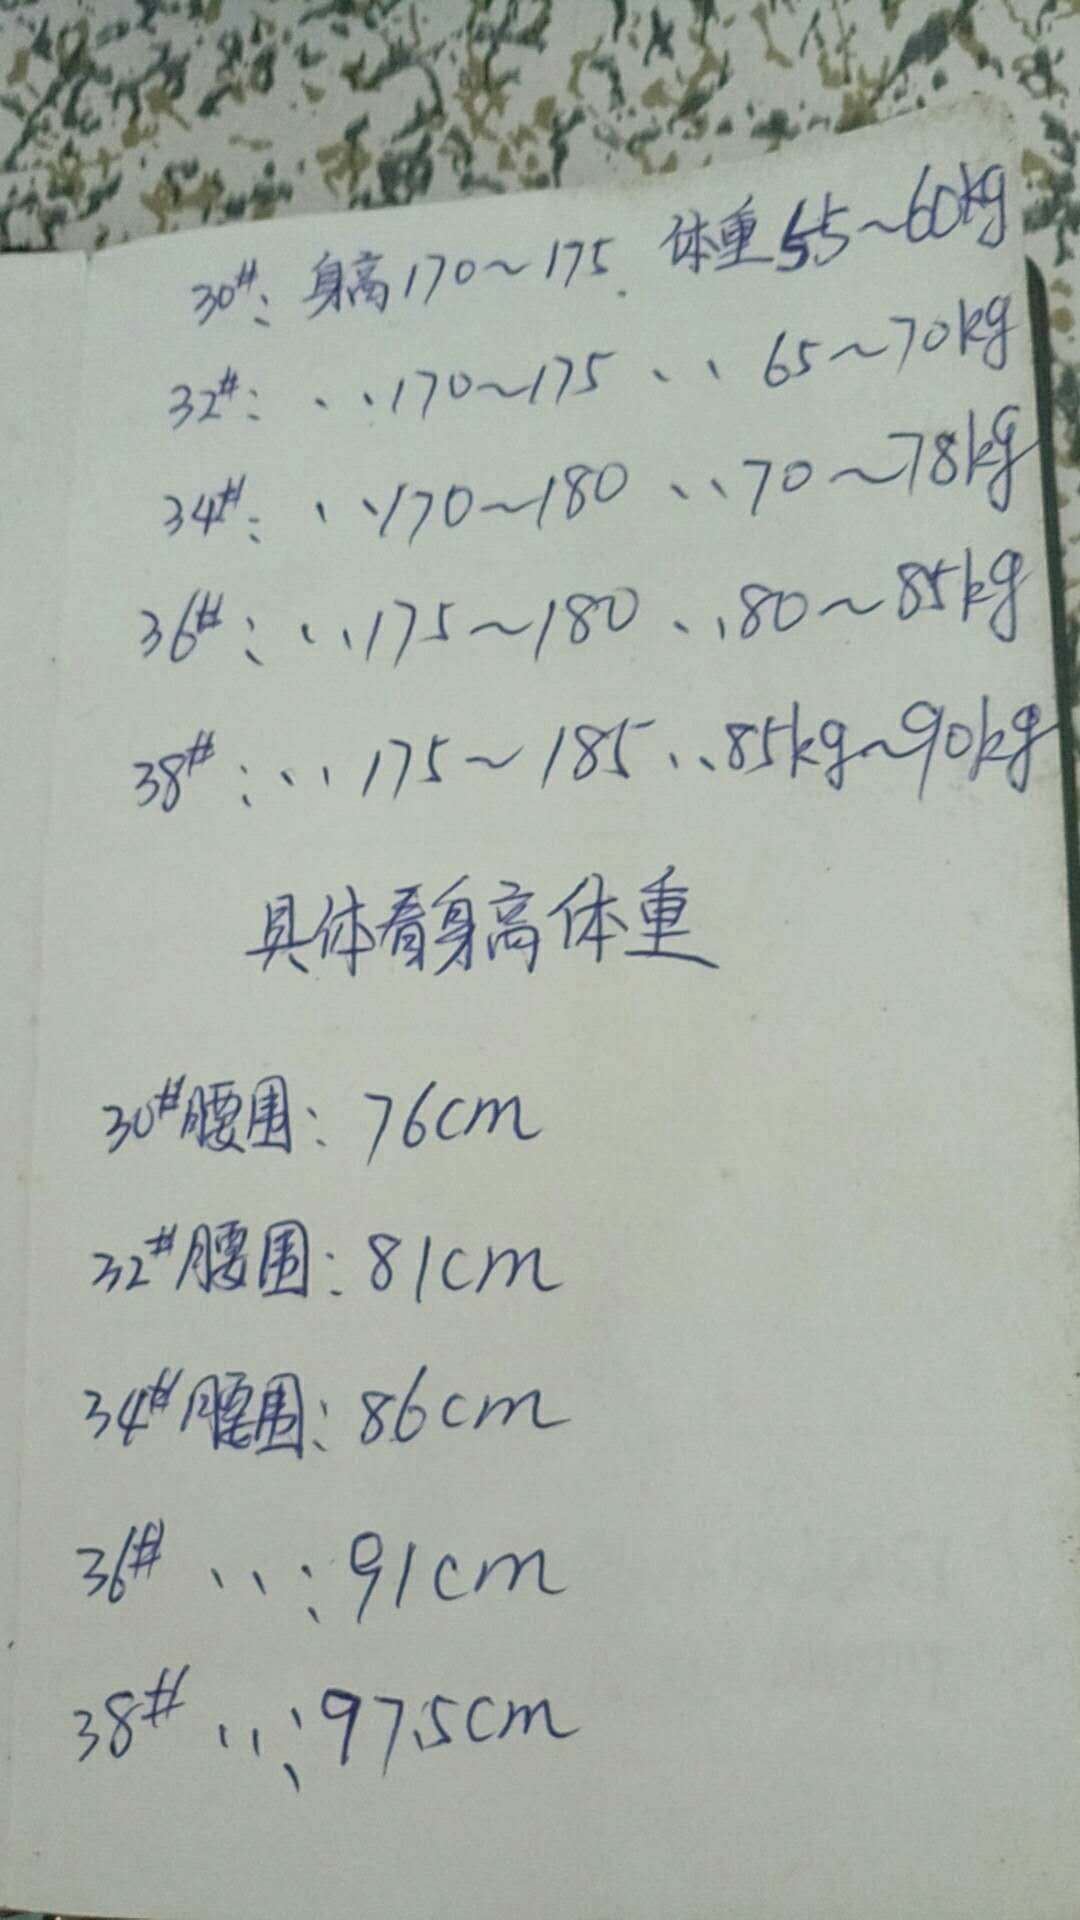 30#: 身高170~175. 体重55~60kg
32#: 、、170~175 、、 65~70kg
34#: 、、170~180 、、70~78kg
36#: 、、175~180 、、80~85kg
38#: 、、175~185 、、85kg~90kg
具体看身高体重
30#腰围: 76cm
32#腰围: 81cm
34#腰围: 86cm
36# 、、: 91cm
38# 、、: 97.5cm